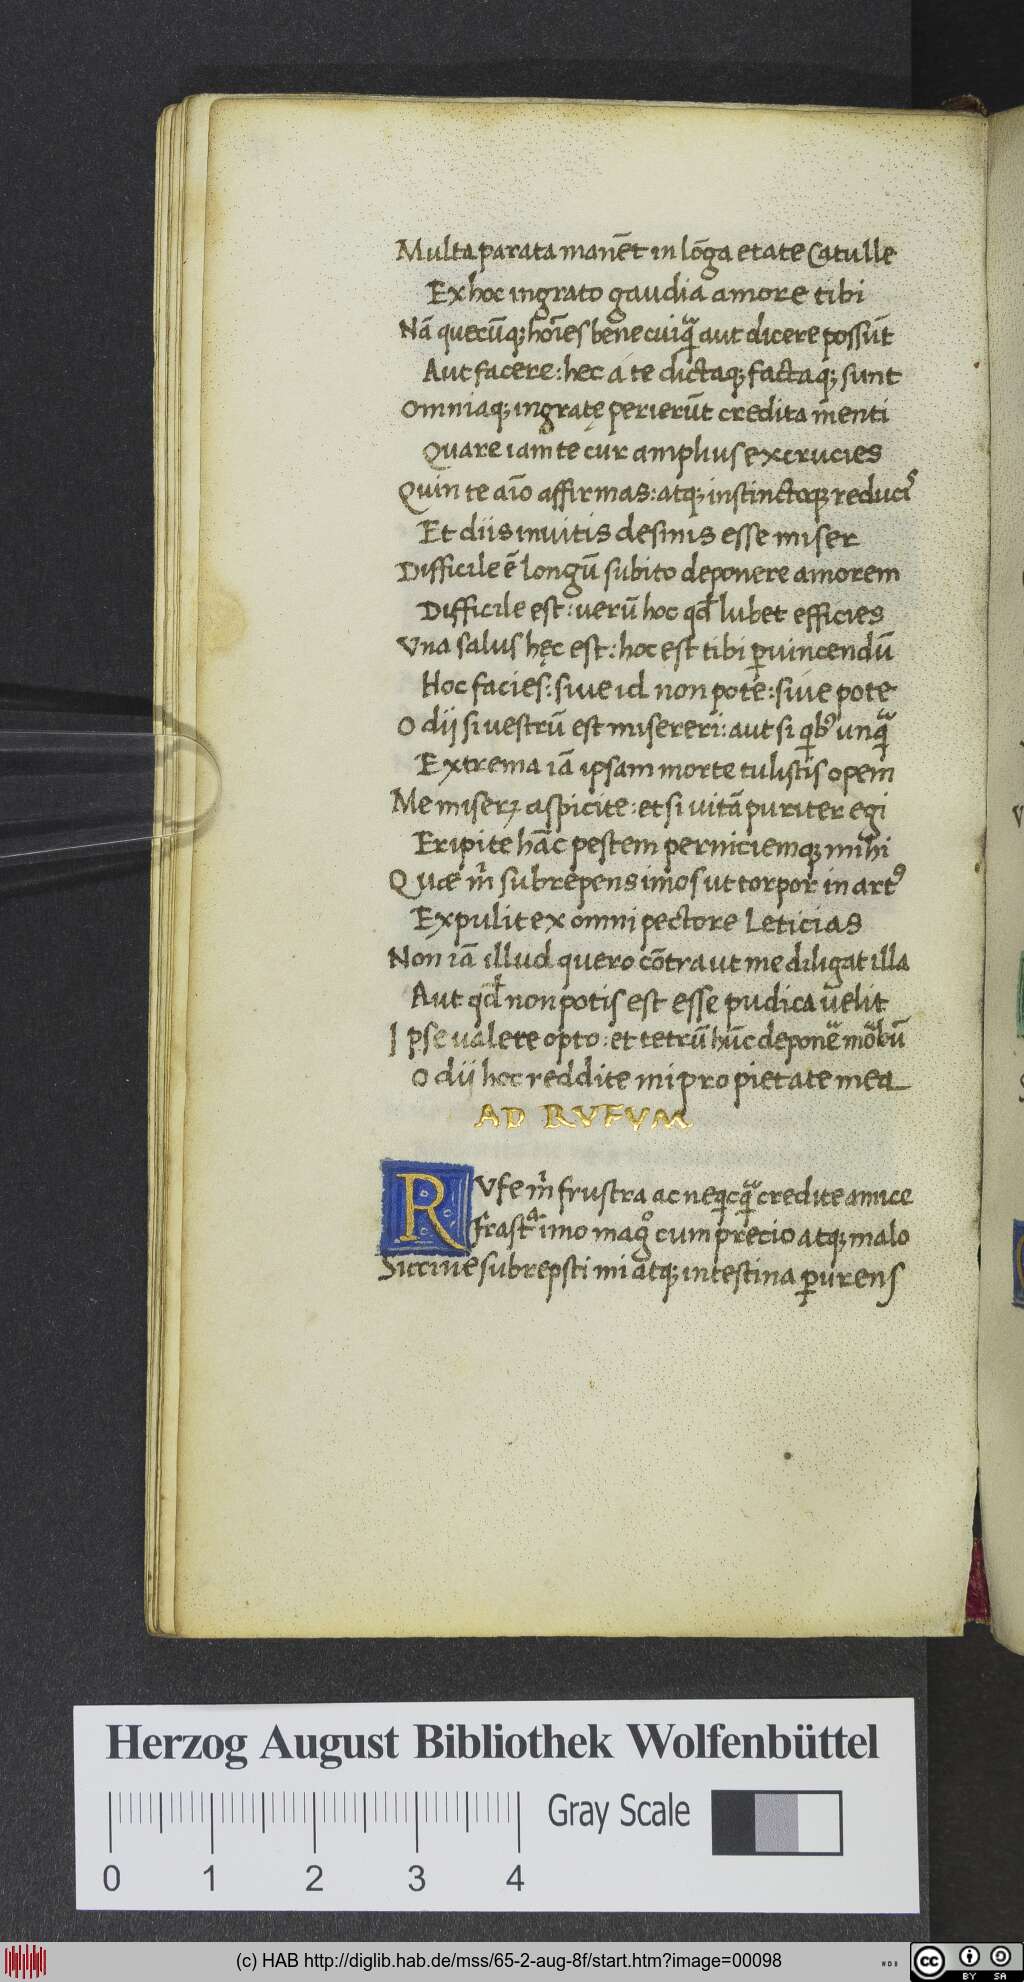 Multa parata manēt in lōga etate Catulle
Ex hoc ingrato gaudia amore tibi
Nā quecūq; hoīes bene cuiq̄ aut dicere possūt
Aut facere: hec a te dictaq; factaq; sunt
Omniaq; ingratę perierūt credita menti
Quare iam te cur amplius excrucies
Quin te aīo affirmas: atq; instinctoq; reducis
Et diis inuitis desinis esse miser
Difficile ē longū subito deponere amorem
Difficile est: uerū hoc qđ lubet efficies
Vna salus hęc est: hoc est tibi ꝑuincendū
Hoc facies: siue id non pote: siue pote
O dij si vestrū est misereri: aut si qibꝰ unq̄
Extrema iā ipsam morte tulistis opem
Me miserꝝ aspicite: et si vitā puriter egi
Eripite hāc pestem perniciemq; mihi
Quæ m̄ subrepens imos ut torpor in artꝰ
Expulit ex omni pectore Leticias
Non iā illud quero cōtra ut me diligat illa
Aut qđ non potis est esse pudica uelit
Ipse valere opto: et tetrū hūc deponē̄ mōbū
O dij hoc reddite mi pro pietate mea
AD RVFVM
Rufe m̄ frustra ac neqcq̄ credite amice
frastª imo magº cum precio atq; malo
Siccine subrepsti mi atq; intestina ꝑurens
Herzog August Bibliothek Wolfenbüttel
0 1 2 3 4
Gray Scale
(c) HAB http://diglib.hab.de/mss/65-2-aug-8f/start.htm?image=00098
cc BY SA